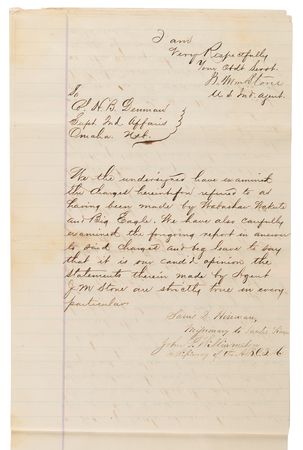 I am
Very Respectfully
Your Obdt Servt
Stone
U S Ind. Agent.
To
H. B. Denman
Supt Ind Affairs
Omaha Neb.
We the undersigned have examined
the charges heretofore referred to as
having been made by Wabashaw Wakute
and Big Eagle. We have also carefully
examined the forgoing report in answer
to said charges and beg leave to say
that it is our candid opinion the
statements therein made by Agent
J M Stone are strictly true in every
particular.
Saml D. Hinman,
Missionary to Santee
John P. Williamson
Missionary of the A.B.C.F.M